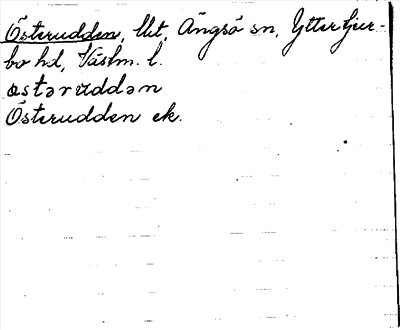 Österudden, lht, Ängsö sn, Yttertjur-
bo hd, Västm. l.
östərúddən
Österudden ek.